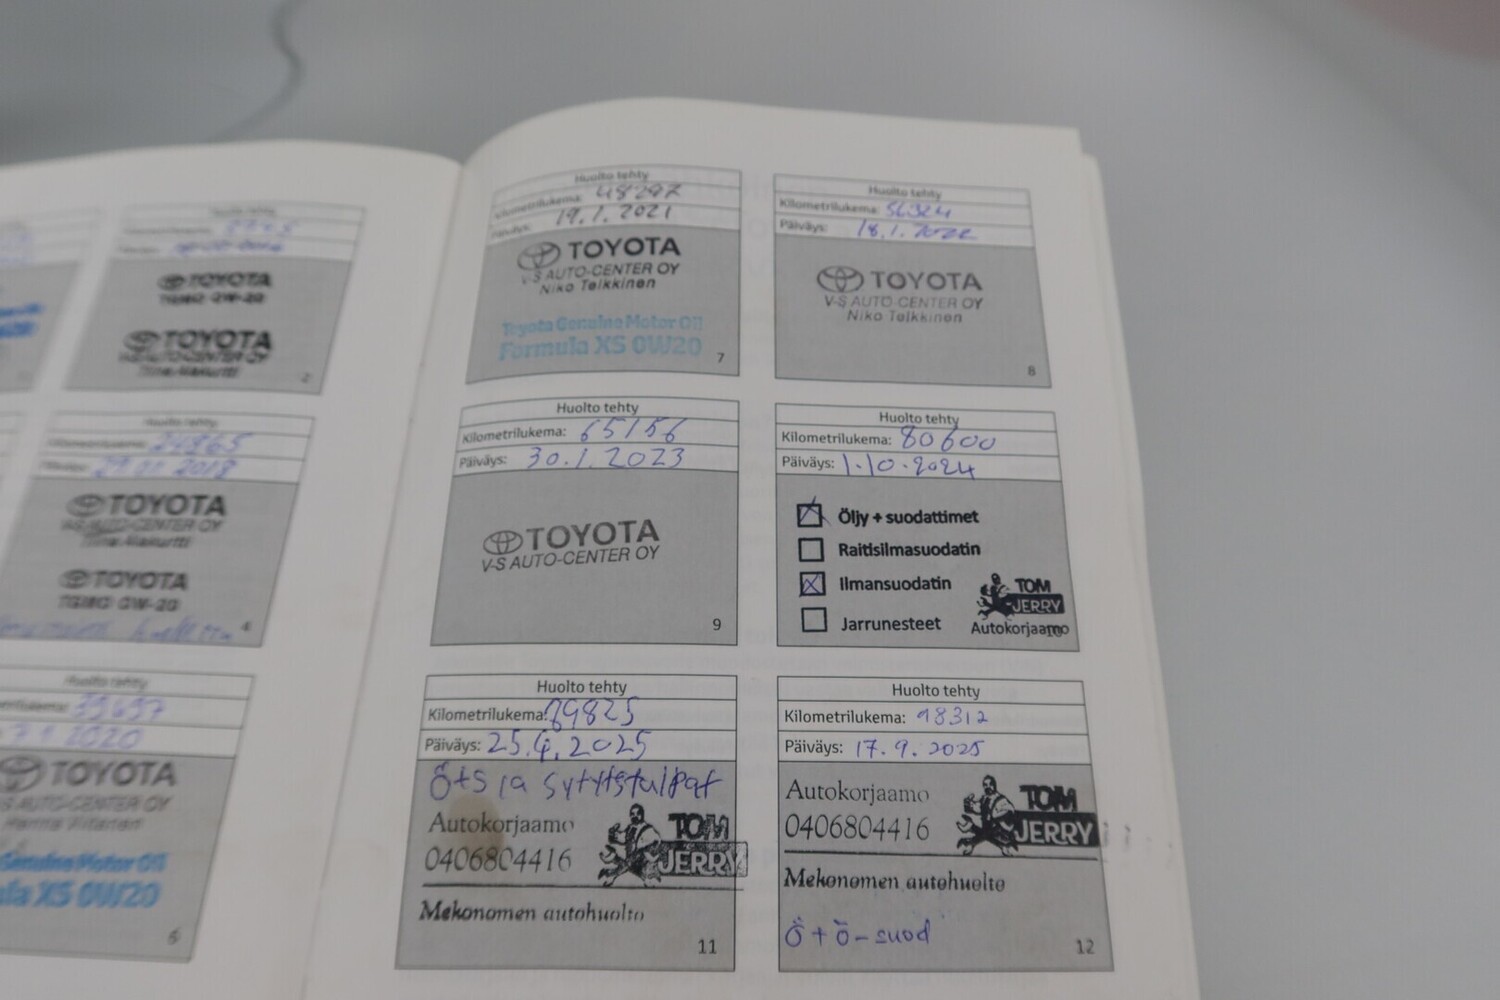 Huolto tehty
TOYOTA
TGMO 0W-20
TOYOTA
V-S AUTO-CENTER OY
2
Huolto tehty
Kilometrilukema: 24865
TOYOTA
V-S AUTO-CENTER OY
TOYOTA
TGMO 0W-20
4
Huolto tehty
39697
2020
TOYOTA
AUTO-CENTER OY
Genuine Motor Oil
XS 0W20
6
Huolto tehty
Kilometrilukema: 48297
Päiväys: 19.1.2021
TOYOTA
V-S AUTO-CENTER OY
Niko Telkkinen
Toyota Genuine Motor Oil
Formula XS 0W20
7
Huolto tehty
Kilometrilukema: 56324
Päiväys: 18.1.2022
TOYOTA
V-S AUTO-CENTER OY
Niko Telkkinen
8
Huolto tehty
Kilometrilukema: 65156
Päiväys: 30.1.2023
TOYOTA
V-S AUTO-CENTER OY
9
Huolto tehty
Kilometrilukema: 80600
Päiväys: 1.10.2024
Öljy + suodattimet
Raitisilmasuodatin
Ilmansuodatin
Jarrunesteet
TOM
JERRY
Autokorjaamo
10
Huolto tehty
Kilometrilukema: 89825
Päiväys: 25.4.2025
Ö+S ja sytytstulpat
Autokorjaamo
0406804416
TOM
JERRY
Mekonomen autohuolto
11
Huolto tehty
Kilometrilukema: 98312
Päiväys: 17.9.2025
Autokorjaamo
0406804416
TOM
JERRY
Mekonomen autohuolto
Ö + ö-suod
12